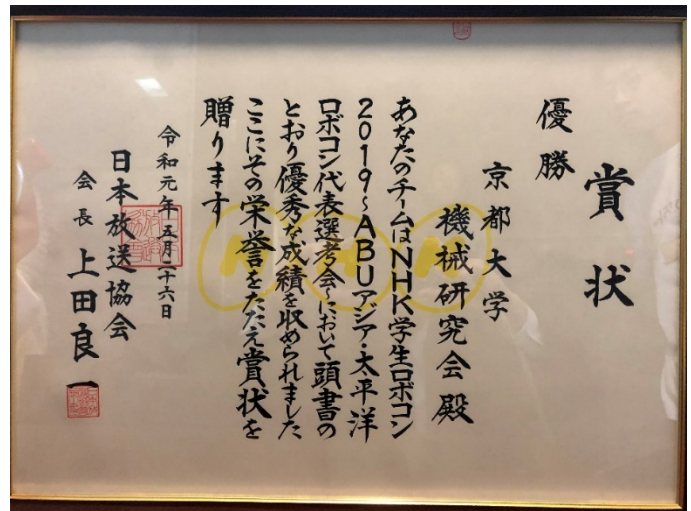 賞状
優勝
京都大学
機械研究会殿
あなたのチームはNHK学生ロボコン
2019~ABUアジア・太平洋
ロボコン代表選考会~において頭書の
とおり優秀な成績を収められました
ここにその栄誉をたたえ賞状を
贈ります
令和元年五月二十六日
日本放送協会
会長 上田良一
NHK